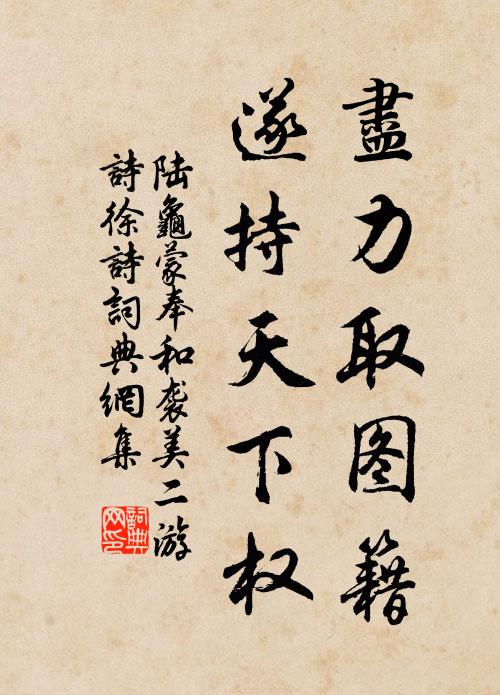 盡力取图籍
遂持天下权
陆龜蒙奉和袭美二游
詩徐詩詞典網集
詞典
网印